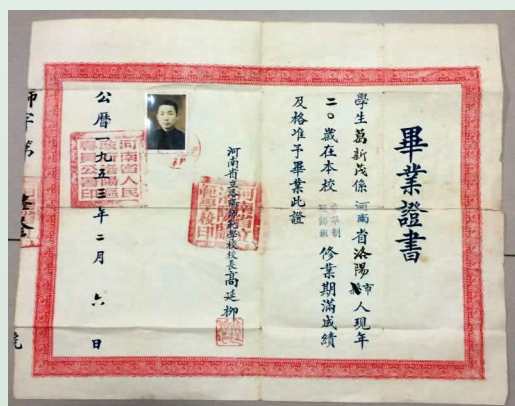 畢業證書
學生葛新茂係河南省洛陽市人現年
二〇歲在本校 修業期滿成績
及格准予畢業此證
河南省立洛陽師範學校校長高延柳
公曆一九五三年二月六日
師字第
號